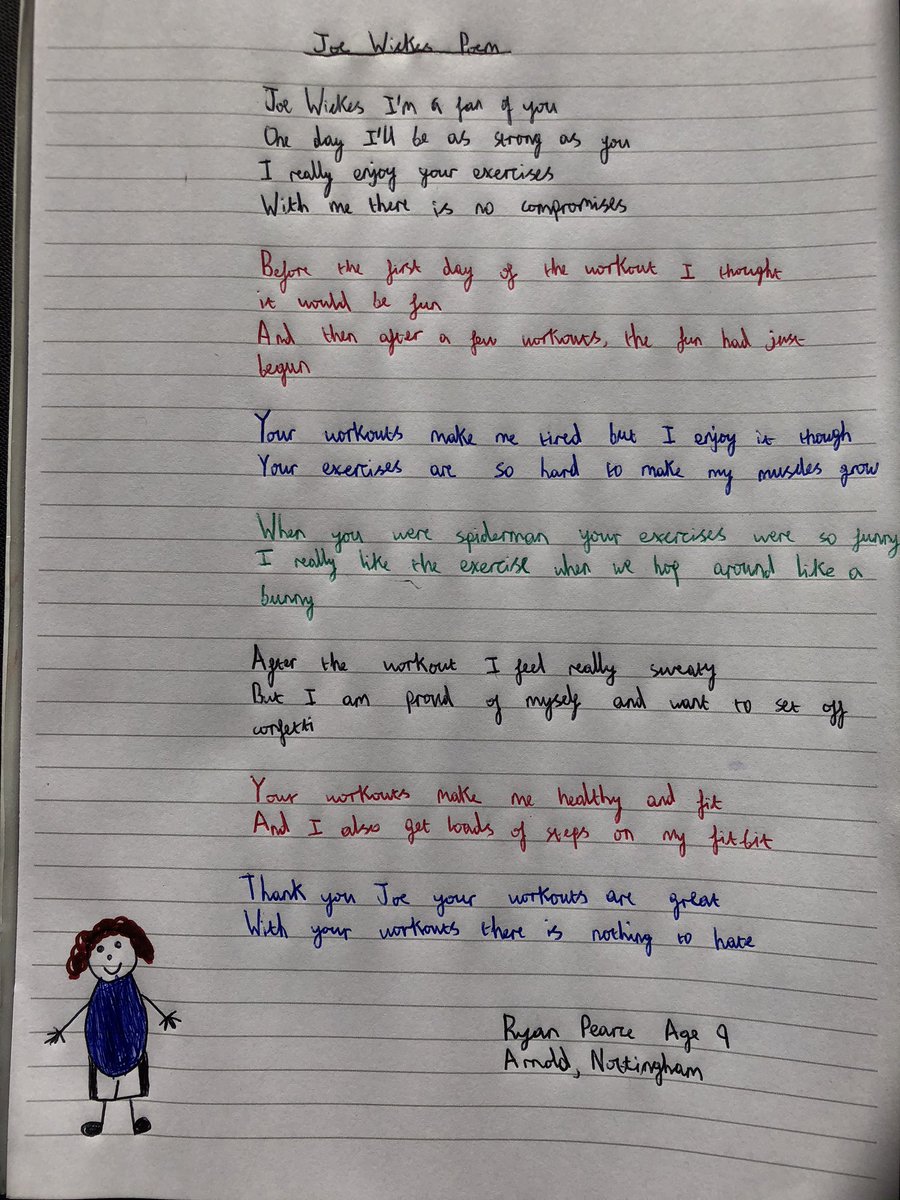 Joe Wickes Poem
Joe Wickes I'm a fan of you
One day I'll be as strong as you
I really enjoy your exercises
With me there is no compromises
Before the first day of the workout I thought
it would be fun
And then after a few workouts, the fun had just
begun
Your workouts make me tired but I enjoy it though
Your exercises are so hard to make my muscles grow
When you were spiderman your exercises were so funny
I really like the exercise when we hop around like a
bunny
After the workout I feel really sweaty
But I am proud of myself and want to set off
confetti
Your workouts make me healthy and fit
And I also get loads of steps on my fitbit
Thank you Joe your workouts are great
With your workouts there is nothing to hate
Ryan Pearce Age 9
Arnold, Nottingham